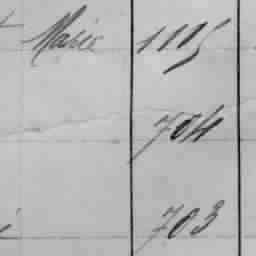 Marie 1115
704
703